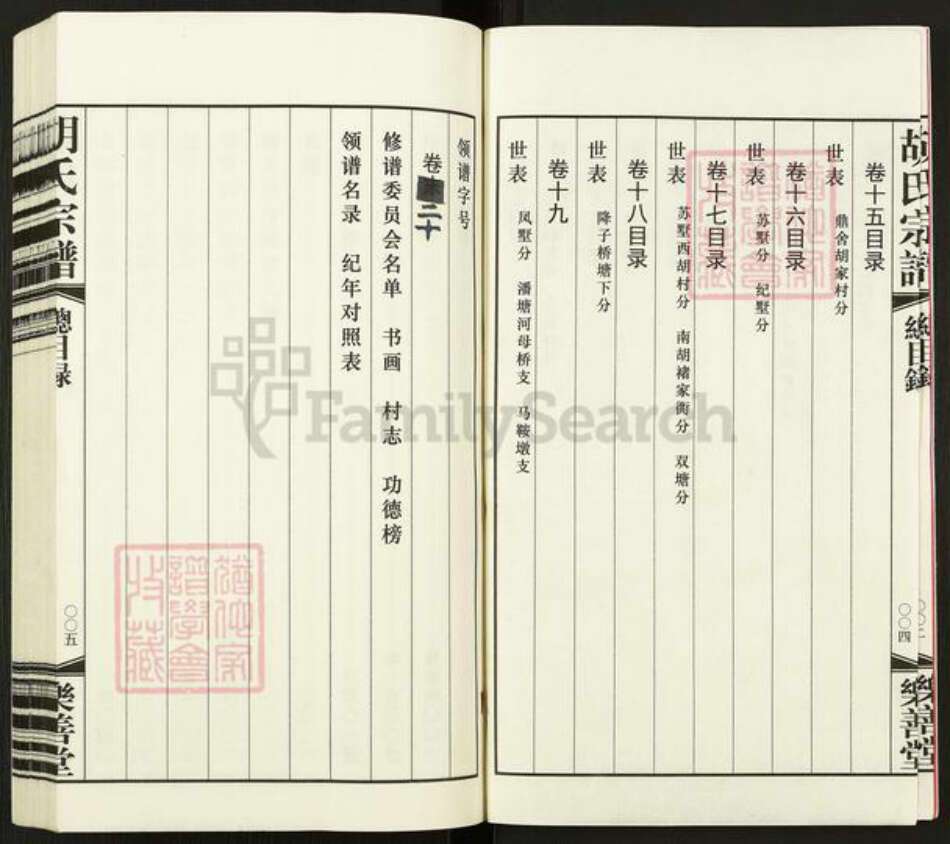 胡氏宗譜
總目錄
〇〇四
樂善堂
卷十五目录
世表
鼎舍胡家村分
卷十六目录
世表
苏墅分 纪墅分
卷十七目录
世表
苏墅西胡村分 南胡褚家衖分 双塘分
卷十八目录
世表
降子桥塘下分
卷十九
世表
凤墅分 潘塘河母桥支 马鞍墩支
领谱字号
卷二十
修谱委员会名单 书画 村志 功德榜
领谱名录 纪年对照表
胡氏宗譜
總目録
〇〇五
樂善堂
譜學會
收藏
FamilySearch